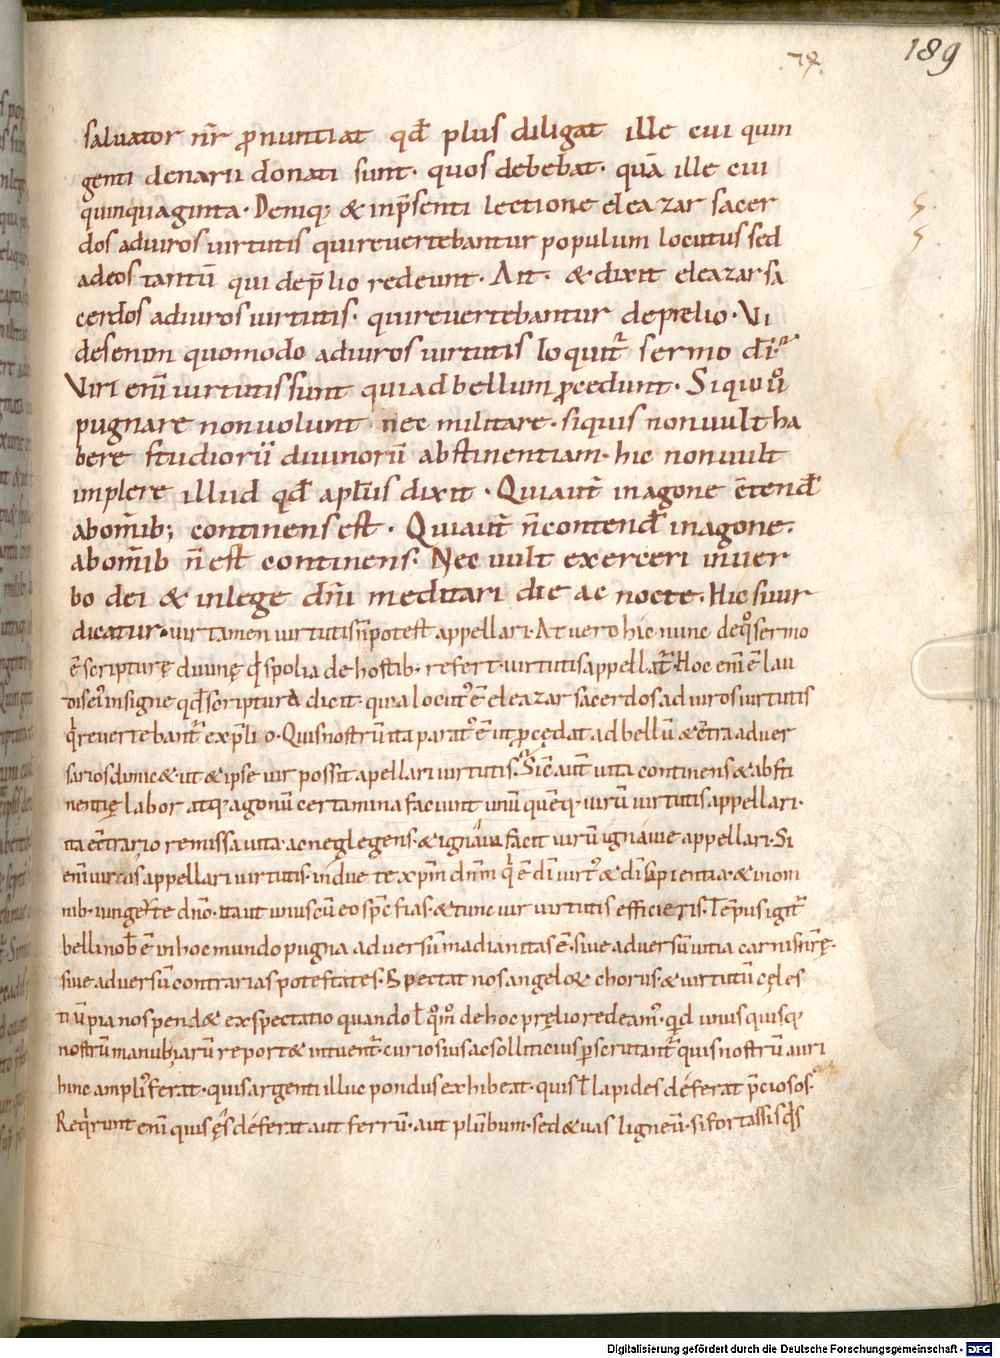 189
saluator nr̄ ꝓnuntiat qd̄ plus diligat ille cui quin
genti denarii donati sunt· quos debebat· quā ille cui
quinquaginta· Deniq; & inp̄senti lectione eleazar sacer
dos aduiros uirtutis quireuertebantur populum locutus sed
adeos tantū qui dep̄lio redeunt· Ait· & dixit eleazar sa
cerdos aduiros uirtutis· quireuertebantur deprelio· Vi
desenim quomodo aduiros uirtutis loquit᷑ sermo dī·
Viri enī uirtutis sunt qui ad bellum ꝓcedunt· Si qui ů
pugnare nonuolunt nec militare· siquis nonuult ha
bere studiorū diuinorū abstinentiam· hic nonuult
implere illud qd̄ apl̄us dixit· Quiaut̄ in agone c̄tend̄
abom̄ib; continens est· Quiaut̄ n̄contend̄ inagone·
abom̄ib n̄ est continens· Nec uult exerceri inuer
bo dei & inlege dn̄i meditari die ac nocte· Hic siuir
dicatur· uir tamen uirtutis n̄potest appellari· At uero hic nunc deq̊ sermo
ē scripturę diuinę q̓ spolia de hostib· refert· uirtutis appellat᷑· Hoc enī ē lau
dis ei᷒ insigne qd̄ scriptura dicit· quia locut᷒ ē eleazar sacerdos ad uiros uirtutis
q̓ reuertebant᷑ exp̄lio· Quis nostrū ita parat᷒ ē ut ꝓcędat ad bellū & c̄tra aduer
sarios dimic& ut & ipse uir possit apellari uirtutis· Sic̄ aut̄ uita continens & absti
nentię labor atq· agonū certamina faciunt unū quēq· uirū uirtutis appellari·
ita c̄trario remissa uita· ac neglegens· & ignaua facit uirū ignauie appellari· Si
enī uir uis appellari uirtutis· indue te xp̄m dn̄m q̓ ē dī uirt᷒ & dī sapientia· & in om
nib· iunger̄ te dn̄o· ita ut unus cū eo sp̄c fias· & tunc uir uirtutis efficieris·
belli nob̄ ē in hoc mundo pugna aduersū madianitas ē· siue aduersū uitia carnis nr̄ę·
siue aduersū contrarias potestates· Spectat nos angelo& chorus· & uirtutū cęles
tiū pia nos pend& exspectatio quando l̄ q̊m̊ de hoc pręlio redeam᷒· quid unus quisq·
nostrū manubiarū report& intuent᷑· curiosius ac sollicicius pscrutant᷑ quis nostrū auri
hinc ampli᷒ ferat· quis argenti illuc pondus exhibeat· quis l̄ lapides deferat p̄ciosos·
Req̓runt enī quis ęs deferat aut ferrū· aut plūbum· sed & uas ligneū· si fortassis q̓s
Digitalisierung gefördert durch die Deutsche Forschungsgemeinschaft - DFG